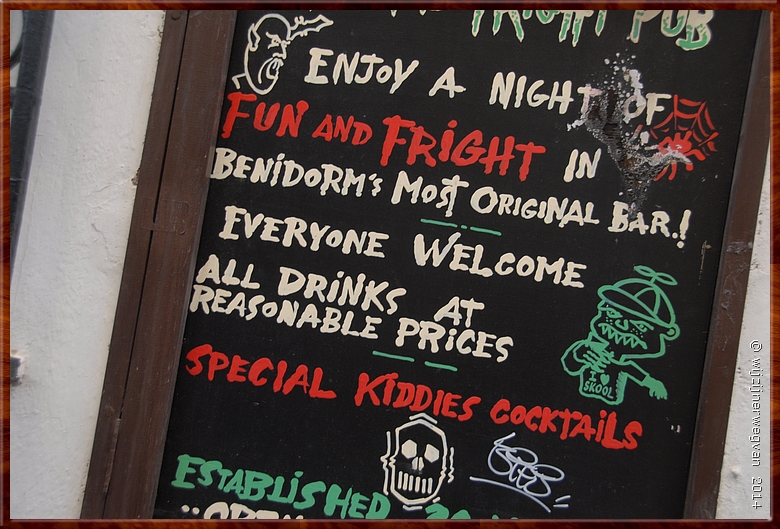 THE FRIGHT PUB
ENJOY A NIGHT OF
FUN AND FRIGHT IN
BENIDORM'S MOST ORIGINAL BAR.!
EVERYONE WELCOME
ALL DRINKS AT
REASONABLE PRICES
I ♥
SKOOL
SPECIAL KIDDIES COCKTAILS
ESTABLISHED
OPEN
© wijzijnerwegvan 2014